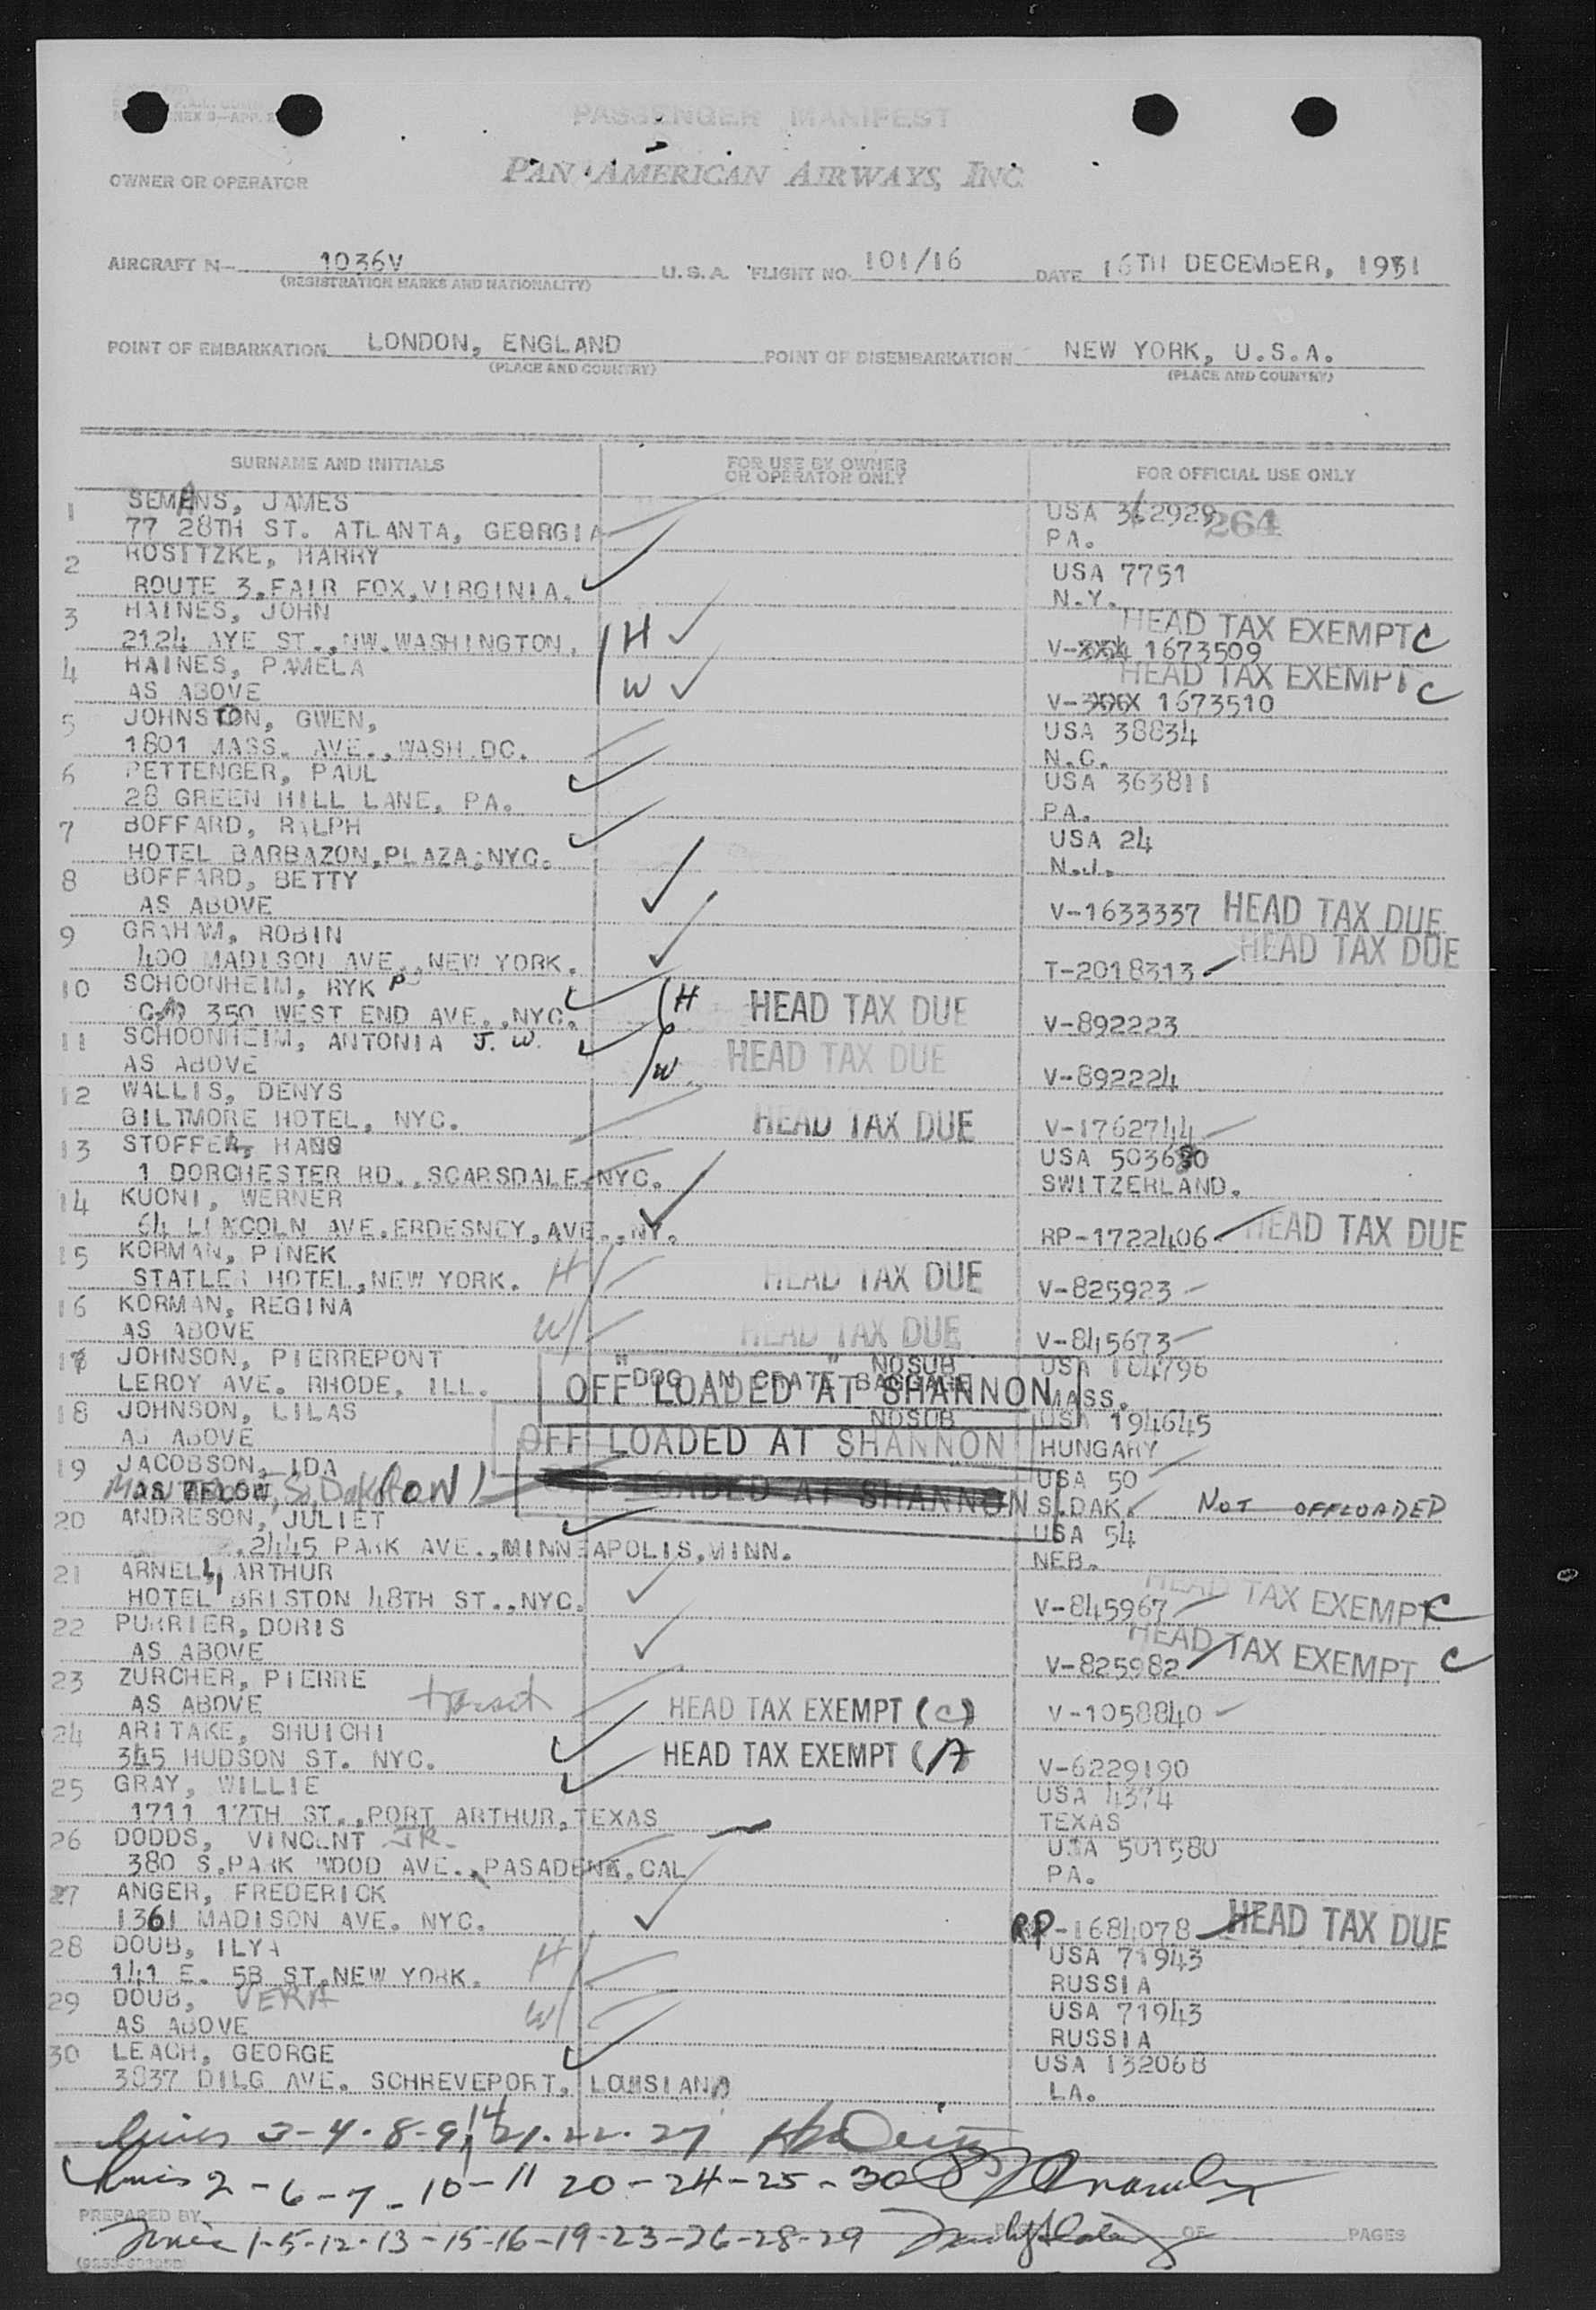 PASSENGER MANIFEST
PAN AMERICAN AIRWAYS, INC
OWNER OR OPERATOR
AIRCRAFT N- 1036V U.S.A. FLIGHT NO. 101/16 DATE 16TH DECEMBER, 1951
(REGISTRATION MARKS AND NATIONALITY)
POINT OF EMBARKATION LONDON, ENGLAND POINT OF DISEMBARKATION NEW YORK, U.S.A.
(PLACE AND COUNTRY) (PLACE AND COUNTRY)
SURNAME AND INITIALS FOR USE BY OWNER OR OPERATOR ONLY FOR OFFICIAL USE ONLY
1 SEMANS, JAMES USA 362929 264
77 28TH ST. ATLANTA, GEORGIA PA.
2 ROSITZKE, HARRY USA 7751
ROUTE 3, FAIR FOX, VIRGINIA. N.Y.
3 HAINES, JOHN HEAD TAX EXEMPT C
2124 AYE ST., NW. WASHINGTON. H V- 1673509
4 HAINES, PAMELA HEAD TAX EXEMPT C
AS ABOVE W V- 1673510
5 JOHNSTON, GWEN, USA 38834
1801 MASS. AVE., WASH.DC. N.C.
6 PETTENGER, PAUL USA 363811
28 GREEN HILL LANE, PA. PA.
7 BOFFARD, RALPH USA 24
HOTEL BARBAZON, PLAZA, NYC. N.J.
8 BOFFARD, BETTY
AS ABOVE V-1633337 HEAD TAX DUE
9 GRAHAM, ROBIN HEAD TAX DUE
400 MADISON AVE., NEW YORK. T-2018313
10 SCHOONHEIM, RYK P H HEAD TAX DUE
350 WEST END AVE., NYC. V-892223
11 SCHOONHEIM, ANTONIA J. W. HEAD TAX DUE
AS ABOVE W V-892224
12 WALLIS, DENYS HEAD TAX DUE
BILTMORE HOTEL, NYC. V-1762744
13 STOFFER, HANS USA 503680
1 DORCHESTER RD., SCARSDALE, NYC. SWITZERLAND.
14 KUONI, WERNER
64 LINCOLN AVE. ERDESNEY, AVE., NY. RP-1722406 HEAD TAX DUE
15 KORMAN, PINEK
STATLER HOTEL, NEW YORK. H HEAD TAX DUE V-825923
16 KORMAN, REGINA
AS ABOVE W HEAD TAX DUE V-845673
17 JOHNSON, PIERREPONT NOSUB USA 104796
LEROY AVE. RHODE, ILL. "DOG IN CRATE" BAGGAGE MASS.
OFF LOADED AT SHANNON
18 JOHNSON, LILAS NOSUB USA 194645
AS ABOVE OFF LOADED AT SHANNON HUNGARY
19 JACOBSON, IDA USA 50
AS BELOW LOADED AT SHANNON S.DAK. NOT OFFLOADED
20 ANDRESON, JULIET USA 54
2445 PARK AVE., MINNEAPOLIS, MINN. NEB.
21 ARNELL, ARTHUR HEAD TAX EXEMPT C
HOTEL BRISTON 48TH ST., NYC. V-845967
22 PURRIER, DORIS HEAD TAX EXEMPT C
AS ABOVE V-825982
23 ZURCHER, PIERRE
AS ABOVE transit HEAD TAX EXEMPT (C) V-1058840
24 ARITAKE, SHUICHI
345 HUDSON ST. NYC. HEAD TAX EXEMPT (A V-6229190
25 GRAY, WILLIE USA 4374
1711 17TH ST., PORT ARTHUR, TEXAS TEXAS
26 DODDS, VINCENT JR. USA 501580
380 S. PARK WOOD AVE., PASADENA, CAL PA.
27 ANGER, FREDERICK
1361 MADISON AVE. NYC. RP-1684078 HEAD TAX DUE
28 DOUB, ILYA H USA 71943
141 E. 58 ST. NEW YORK. RUSSIA
29 DOUB, VERA W USA 71943
AS ABOVE RUSSIA
30 LEACH, GEORGE USA 132068
3837 DILG AVE. SCHREVEPORT, LOUISIANA LA.
Lines 3-4-8-9, 14 21-22-27
Lines 2-6-7-10-11 20-24-25-30
PREPARED BY OF PAGES
Lines 1-5-12-13-15-16-19-23-26-28-29